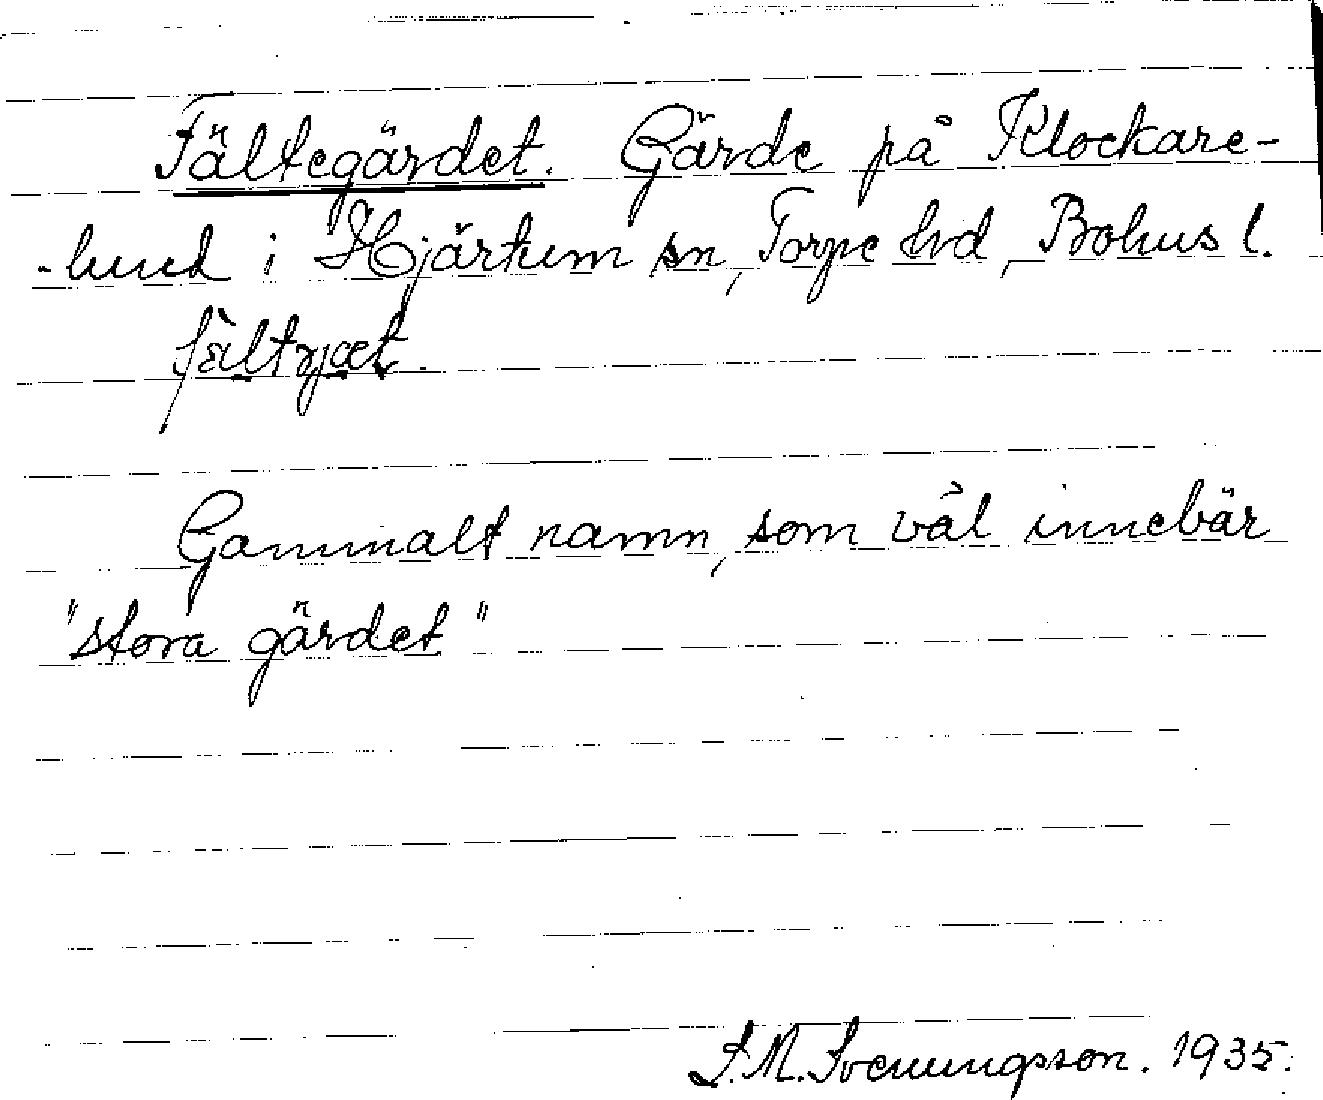 Fältegärdet. Gärde på Klockare-
-lund i Hjärtum sn, Torpe hd, Bohus l.
fältɟæt.
Gammalt namn, som väl innebär
"stora gärdet"
S.M. Svenungsson. 1935.